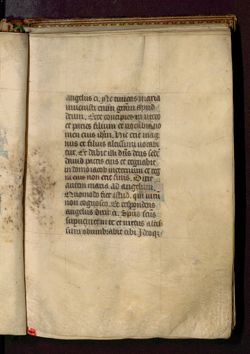 angelus ei. Ne timeas maria
invenisti enim gratiam apud
deum. Ecce concipies in utero
et paries filium et vocabis no
men eius ihm. Hic erit mag
nus et filius altissimi vocabi
tur. Et dabit illi dns deus sedē
david patris eius et regnabit
in domo iacob in eternum et reg
ni eius non erit finis. Dixit
autem maria ad angelum.
Quomodo fiet istud, qm virū
non cognosco. Et respondens
angelus dixit ei. Spūs scūs
superveniet in te et virtus altis
simi obumbrabit tibi. Ideoqȝ